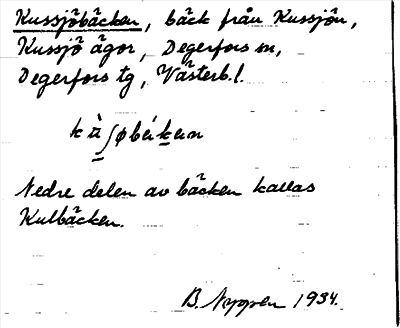 Kussjöbäcken, bäck från Kussjön,
Kussjö ägor, Degerfors sn,
Degerfors tg, Västerb. l.
Nedre delen av bäcken kallas
Kulbäcken.
B. 1934.